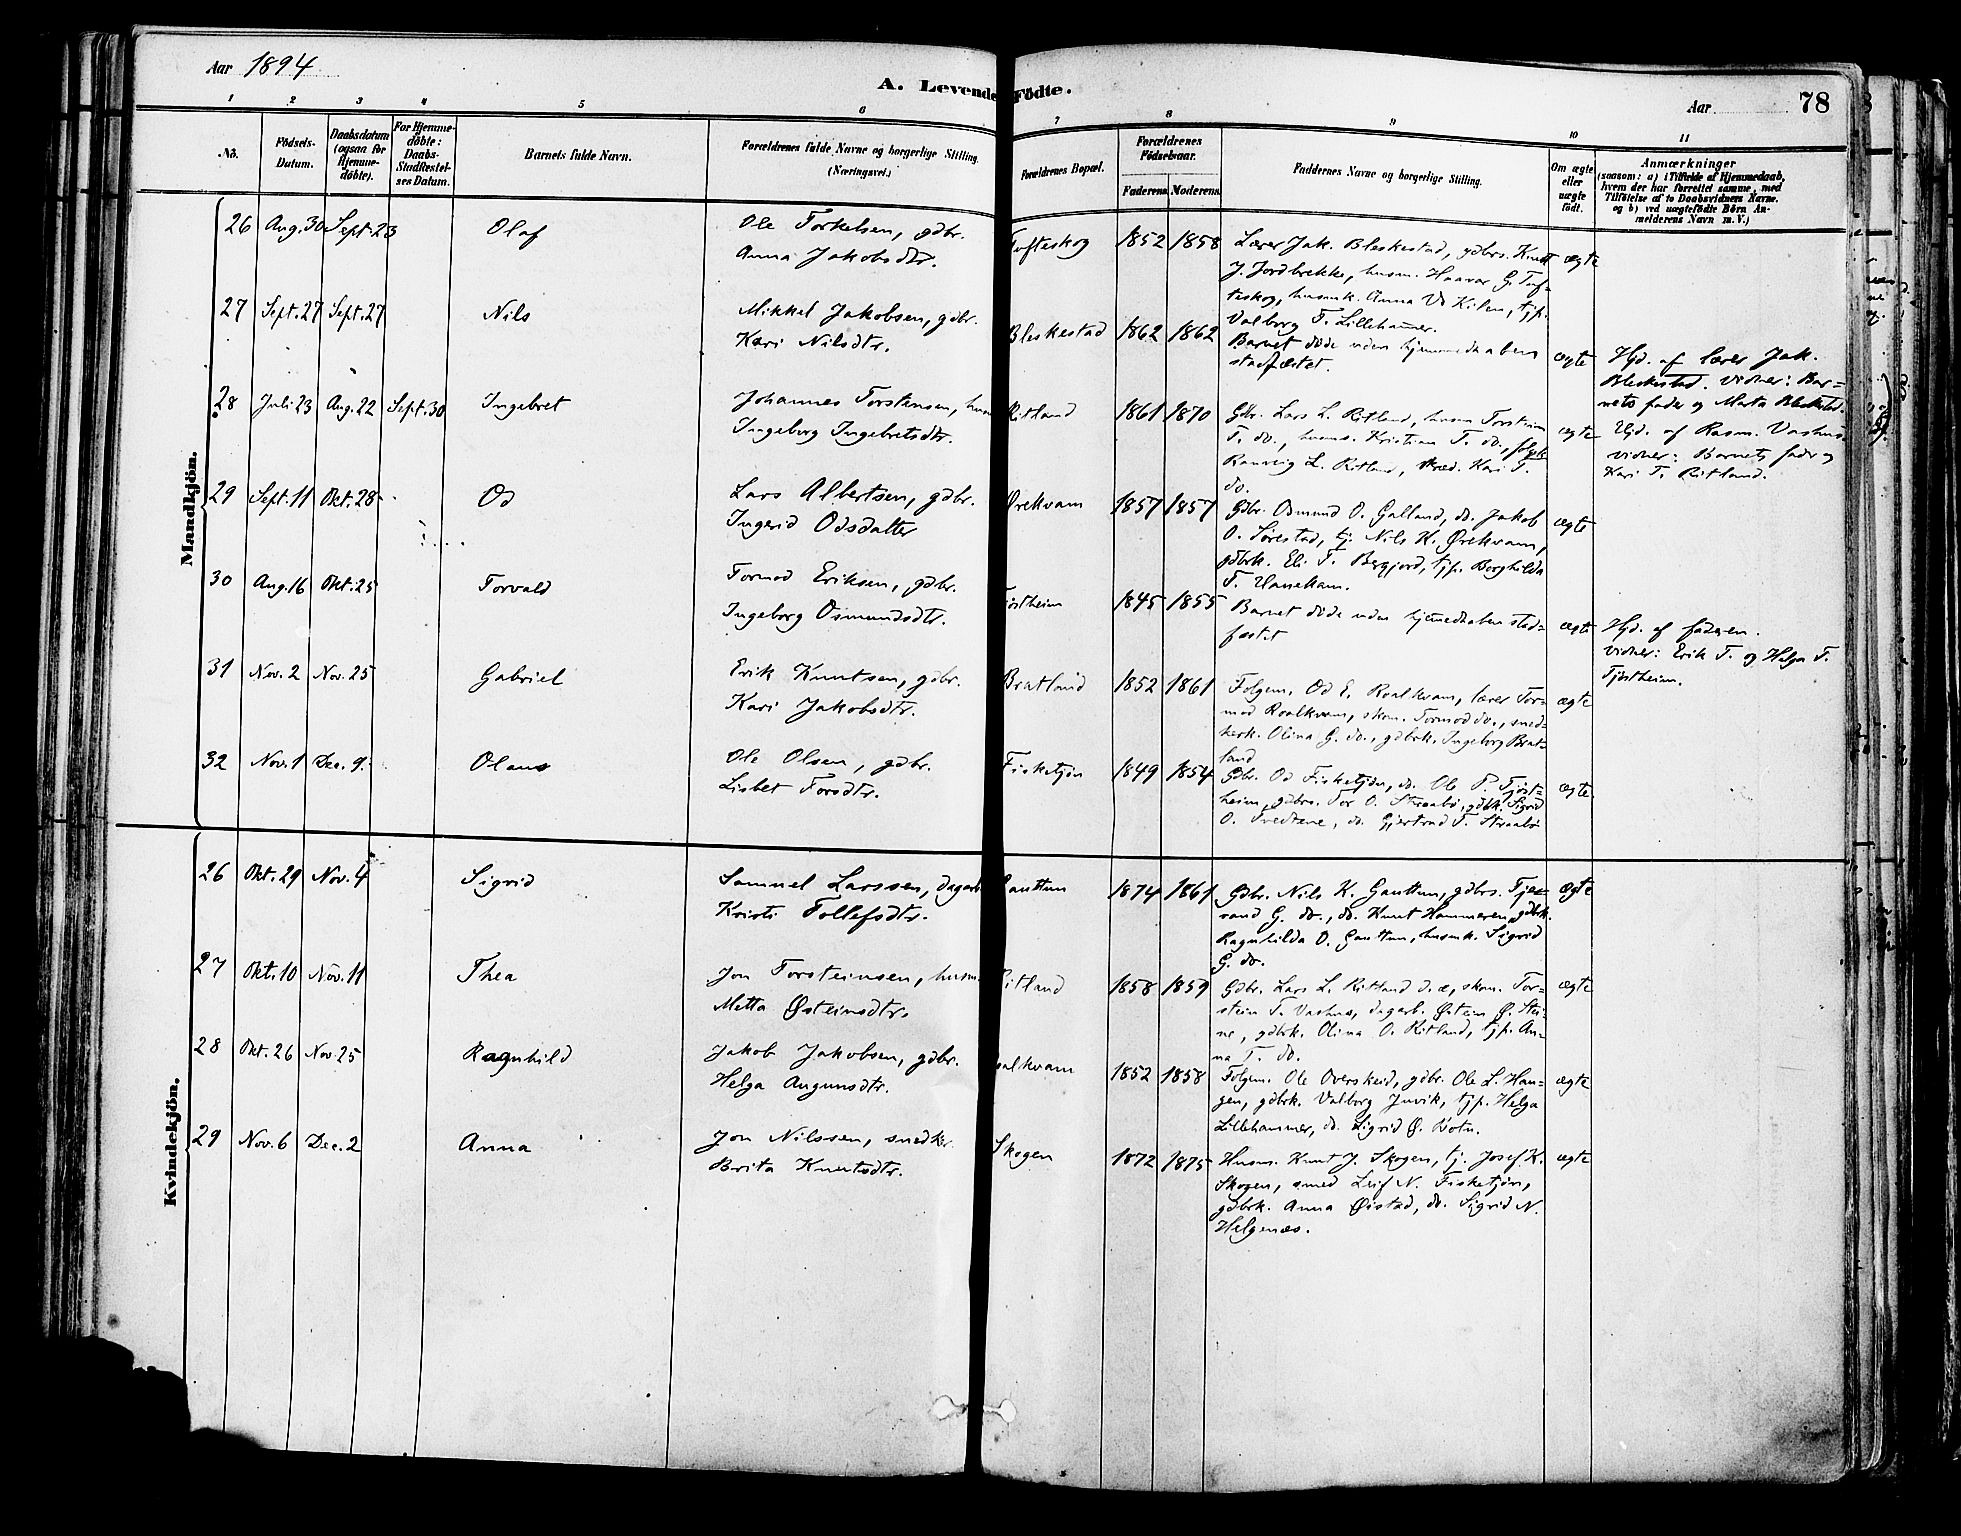 Aar 1894
A. Levende Födte.
Aar 78
1 2 3 4 5 6 7 8 9 10 11
No.
Födsels-Datum.
Daabsdatum (ogsaa for Hjemme-döbte).
For Hjemme-döbte: Daabs-Stadfæstel-ses Datum.
Barnets fulde Navn.
Forældrenes fulde Navne og borgerlige Stilling. (Næringsvei.)
Forældrenes Bopæl.
Forældrenes Födselsaar.
Faderens. Moderens.
Faddernes Navne og borgerlige Stilling.
Om ægte eller uægte födt.
Anmærkninger
(saasom: a) i Tilfælde af Hjemmedaab,
hvem der har forrettet samme, med
Tilföielse af to Daabsvidners Navne.
og b) ved uægtefödte Börn An-
melderens Navn m. V.)
Mandkjön.
26 Aug. 30 Sept. 23 Olaf
Ole Torkelsen, gdbr.
Anna Jakobsdtr.
Tofteskog 1852 1858
Lærer Jak. Bleskestad, gdbrs. Knut
J. Jordbrekke, husm. Haavar G. Tof-
teskog, husmk. Anna Kilen, tjp.
Valborg T. Lillehammer.
ægte
27 Sept. 27 Sept. 27 Nils
Mikkel Jakobsen, gdbr.
Kari Nilsdtr.
Bleskestad 1862 1862
Barnet døde uden hjemmedaaben
stadfæstet.
ægte
Hjd. af lærer Jak.
Bleskestad. Vidner: Bar-
nets fader og Marta Bleskestad.
28 Juli 23 Aug. 22 Sept. 30 Ingebret
Johannes Torstensen, husm
Ingeborg Ingebretsdtr.
Ritland 1861 1870
Gdbr. Lars L. Ritland, husm Torstein
T. do., husms. Kristian T. do., folgk
Rannvig L. Ritland, Kari T.
do.
ægte
Hjd. af Rasm. Vashus
vidner: Barnets fader og
Kari T. Ritland.
29 Sept. 11 Okt. 28 Od
Lars Albertsen, gdbr.
Ingerid Odsdatter
Ørekvam 1857 1857
Gdbr. Osmund O. Galland, do. Jakob
O. Sørestad, tj. Nils K. Ørekvam,
gdbrk. Eli T. Bergjord, tjp. Borghilda
T. Hanekam.
ægte
30 Aug. 16 Okt. 25 Torvald
Tormod Eriksen, gdbr.
Ingeborg Osmundsdtr.
Tjøstheim 1845 1855
Barnet døde uden hjemedaaben stad-
fæstet
ægte
Hjd. af faderen.
vidner: Erik T. og Helga T.
Tjøstheim.
31 Nov. 2 Nov. 25 Gabriel
Erik Knutsen, gdbr.
Kari Jakobsdtr.
Bratland 1852 1861
Folgem. Od E. Roalkvam, lærer Tor-
mod Roalkvam, skom. Tormod do., sned-
kerk. Olina G. do., gdbrk. Ingeborg Brat-
land
ægte
32 Nov. 1 Dec. 9. Olaus
Ole Olsen, gdbr.
Lisbet Torsdtr.
Fisketjøn 1849 1854
Gdbr. Od Fisketjøn, do. Ole P. Tjøst-
heim, gdbrs. Tor O. Straabø, gdbk. Sigrid
O. Tvedtene, do. Gjertrud T. Straabø
ægte
Kvindekjön.
26 Okt. 29 Nov. 4 Sigrid
Samuel Larssen, dagarb
Kristi Tollefsdtr.
Gauttun 1874 1861
Gdbr. Nils K. Gauttun, gdbrs. Tje-
rand G. do., do. Knut Hammeren, gdbrk.
Ragnhilda O. Gauttun, husmk. Sigrid
G. do.
ægte
27 Okt. 10 Nov. 11 Thea
Jon Torsteinsen, husm
Metta Østeinsdtr.
Ritland 1858 1859
Gdbr. Lars L. Ritland d. æ, skom. Tor-
stein T. Vashus, dagarb. Østein Ø. Stei-
ne, gdbrk. Olina O. Ritland, tjp. An-
na T. do.
ægte
28 Okt. 26 Nov. 25 Ragnhild
Jakob Jakobsen, gdbr.
Helga Augunsdtr.
Roalkvam 1852 1858
Folgem. Ole Overskeid, gdbr. Ole L. Hau-
gen, gdbrk. Valborg Juvik, tjp. Helga
Lillehammer, do. Sigrid Ø. Botn.
ægte
29 Nov. 6 Dec. 2 Anna
Jon Nilssen, snedker.
Brita Knutsdtr.
Skogen 1872 1875
Husm. Knut J. Skogen, tj. Josef K.
Skogen, smed Leif N. Fisketjøn,
gdbrk. Anna Øistad, do. Sigrid N.
Helgenæs.
ægte